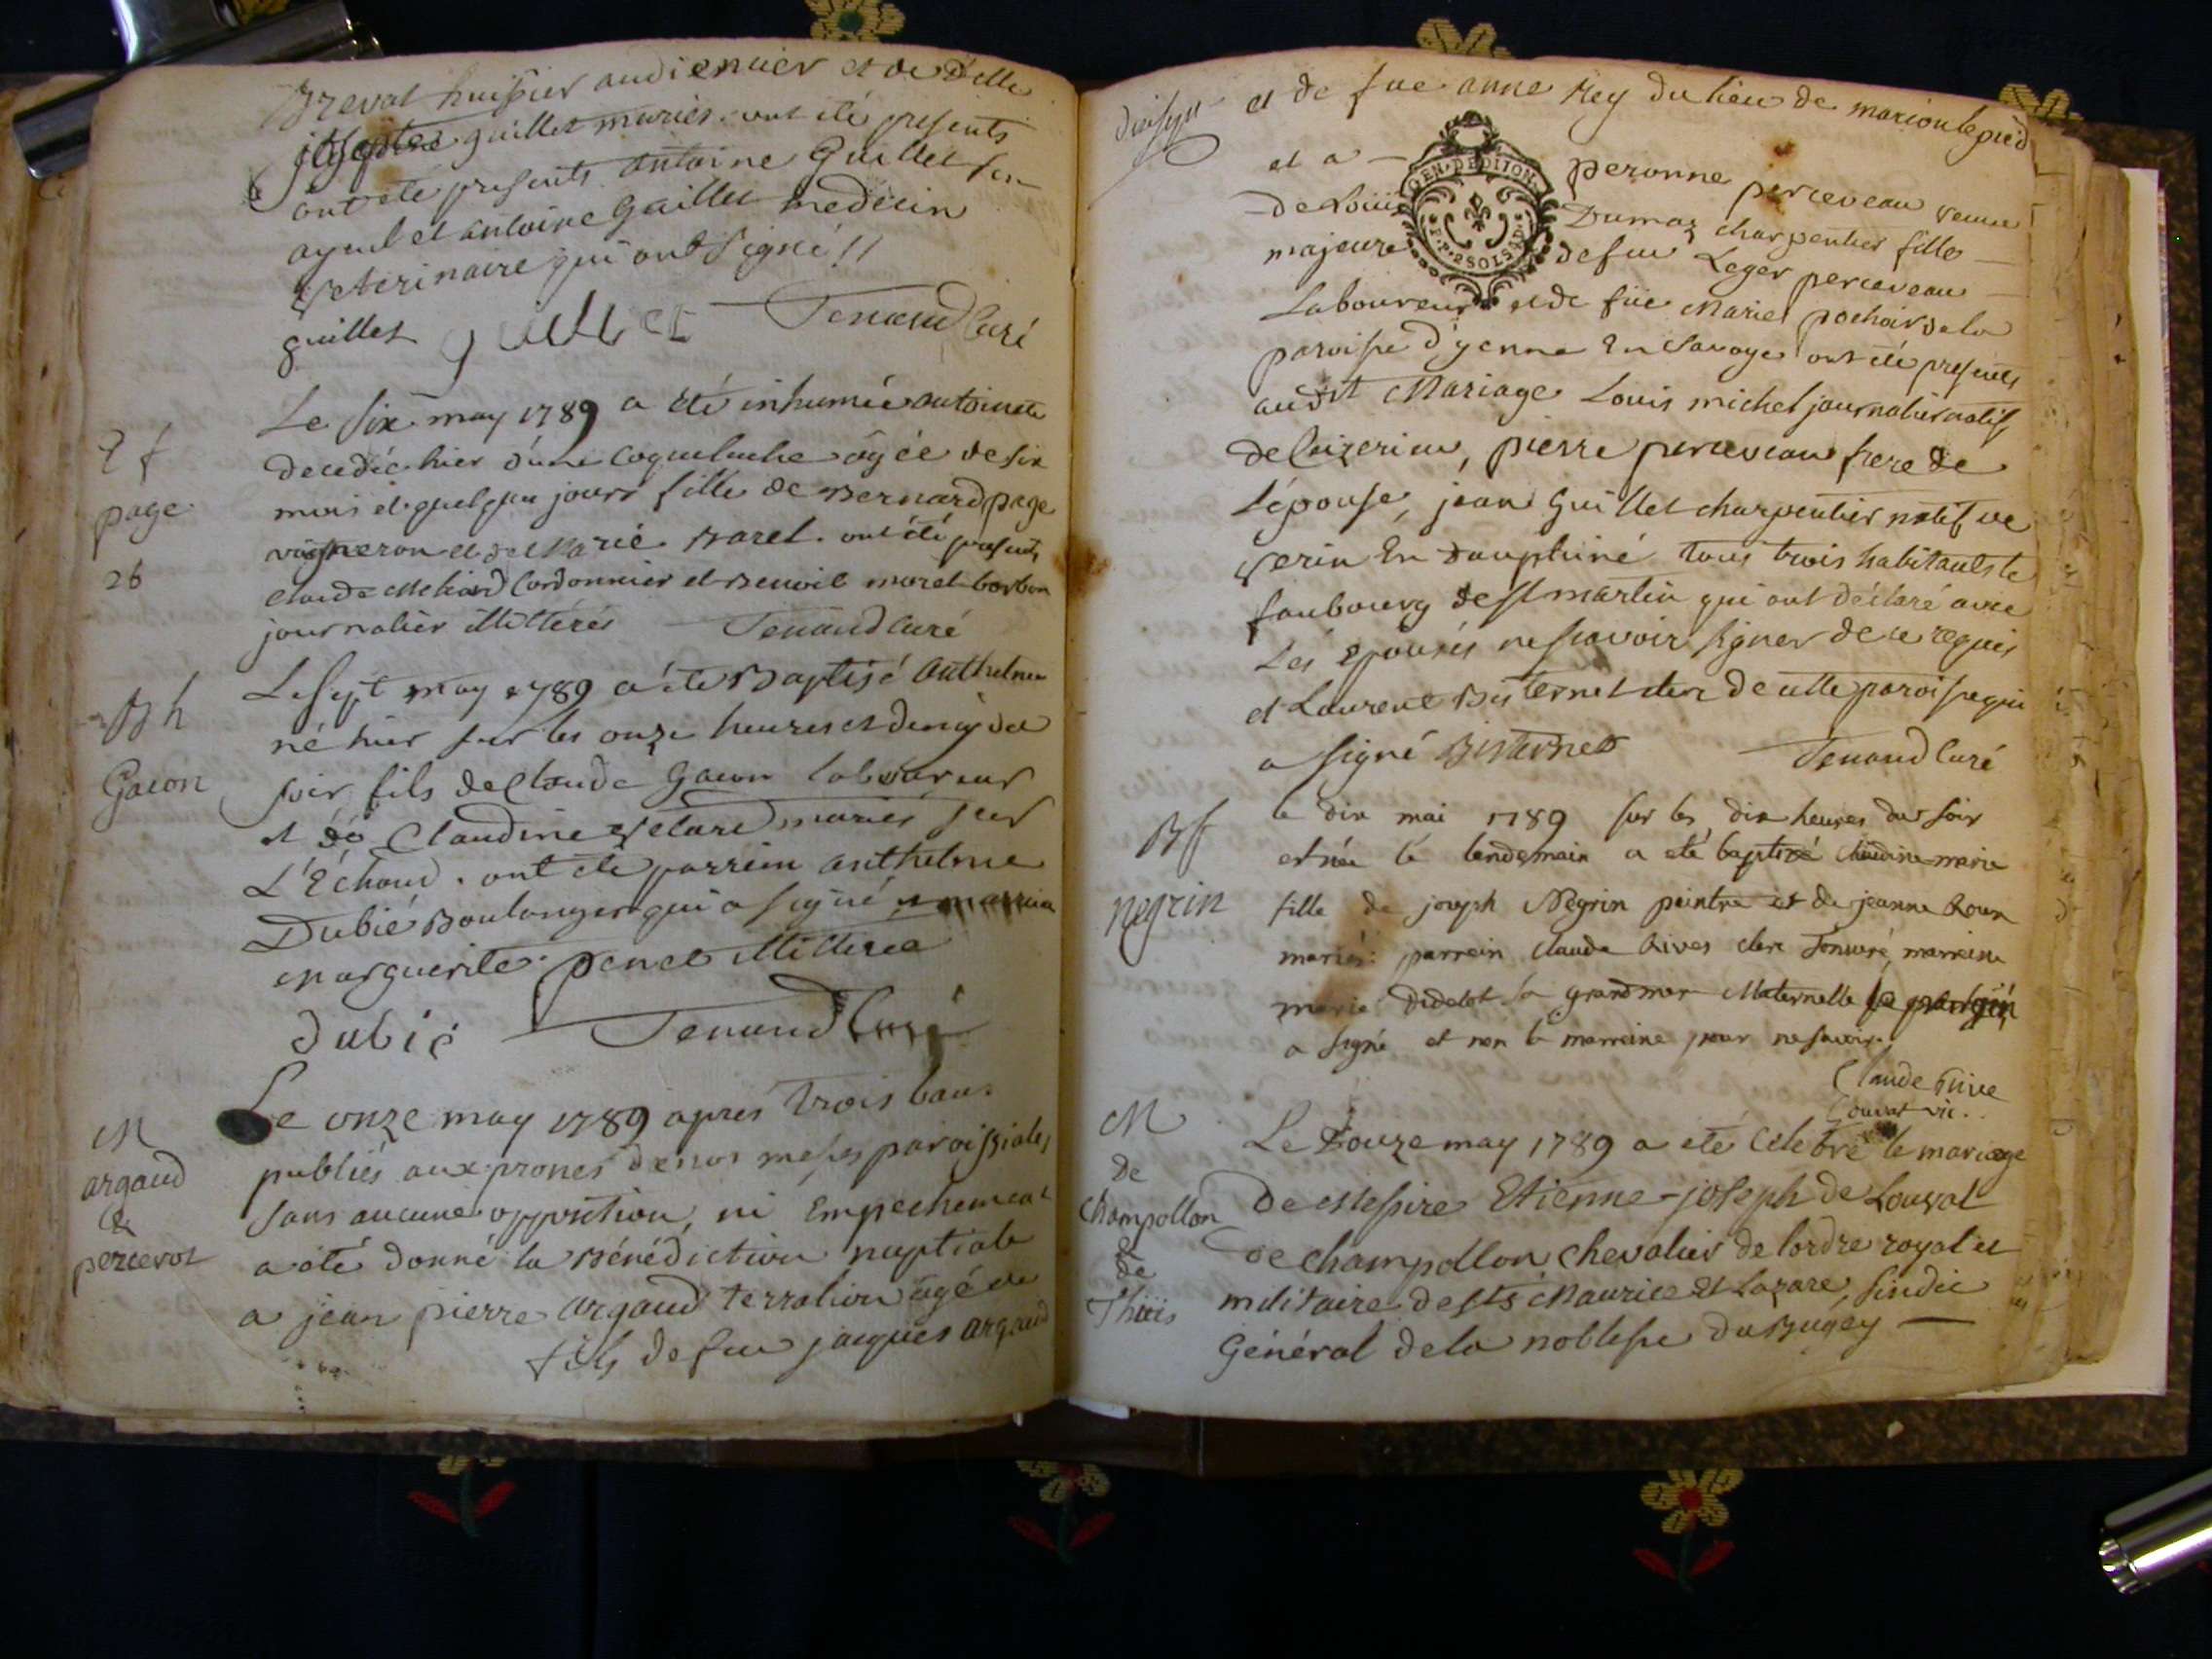 Breval huissier audiencier et de delle
josephte guillet mariés. ont été presents
ont eté presents Antoine Guillet son
ayeul et antoine Guillet medecin
Veterinaire qui ont signé !!
guillet guillet Tenand Curé
Le six may 1789 a été inhumée antoinette
decedée hier d'une coqueluche agée de six
mois et quelques jours fille de Bernard page
vigneron et de Marie Barel. ont été presents
Claude Cordonnier et Benoit moret
journalier illitterés Tenand Curé
E f
page
26
Le sept may 1789 a été Baptisé Anthelme
né hier sur les onze heures et demy du
soir fils de Claude Gacon laboureur
et de Claudine Velard mariés sur
L'Echaud. ont été parrein anthelme
Dubié Boulanger qui a signé et marraine
Marguerite penet illitterée
dubié Tenand Curé
B h
Gacon
Le onze may 1789 aprés trois bans
publiés aux prones de nos messes paroissiales
sans aucune opposition, ni Empechement
a été donné la Bénédiction nuptiale
a jean pierre argaud terralion agé de
fils de feu jacques argaud
M
argaud
&
percevot
et de fue anne Rey du lieu de
et a — peronne perceveau veuve
de Louis Dumaz charpentier fille —
majeure de feu Leger perceveau —
GEN. DE DIJON.
P.P. 2 SOLS 8 D.
Laboureur et de füe Marie pochoir de la
paroisse d'yenne En Savoye ont été presents
audit Mariage Louis michel journalier natif
de Ceizerieu, pierre perceveau frere de
l'épouse, jean Guillet charpentier natif de
Verin En Dauphiné tous trois habitants le
faubourg de st martin qui ont déclaré avec
Les epousés ne sçavoir signer de ce requis
et Laurent Bisternet clerc de cette paroisse qui
a signé Bisternet Tenand Curé
le dix mai 1789 sur les dix heures du soir
est née le lendemain a été baptizé Claudine marie
fille de joseph Négrin peintre et de jeanne Roux
mariés: parrein Claude Rives clerc Tonsuré, marreine
marie Didelot sa grandmer Maternelle
a signé et non la marreine pour ne savoir.
Claude Rive
vic.
B f
negrin
Le Douze may 1789 a eté Celebré le mariage
de Messire Etienne-joseph de Louvat
de champollon chevalier de lordre royal et
militaire de sts Maurice et Lazare, sindic
Général de la noblesse du Bugey —
M
de
Champollon
&
de